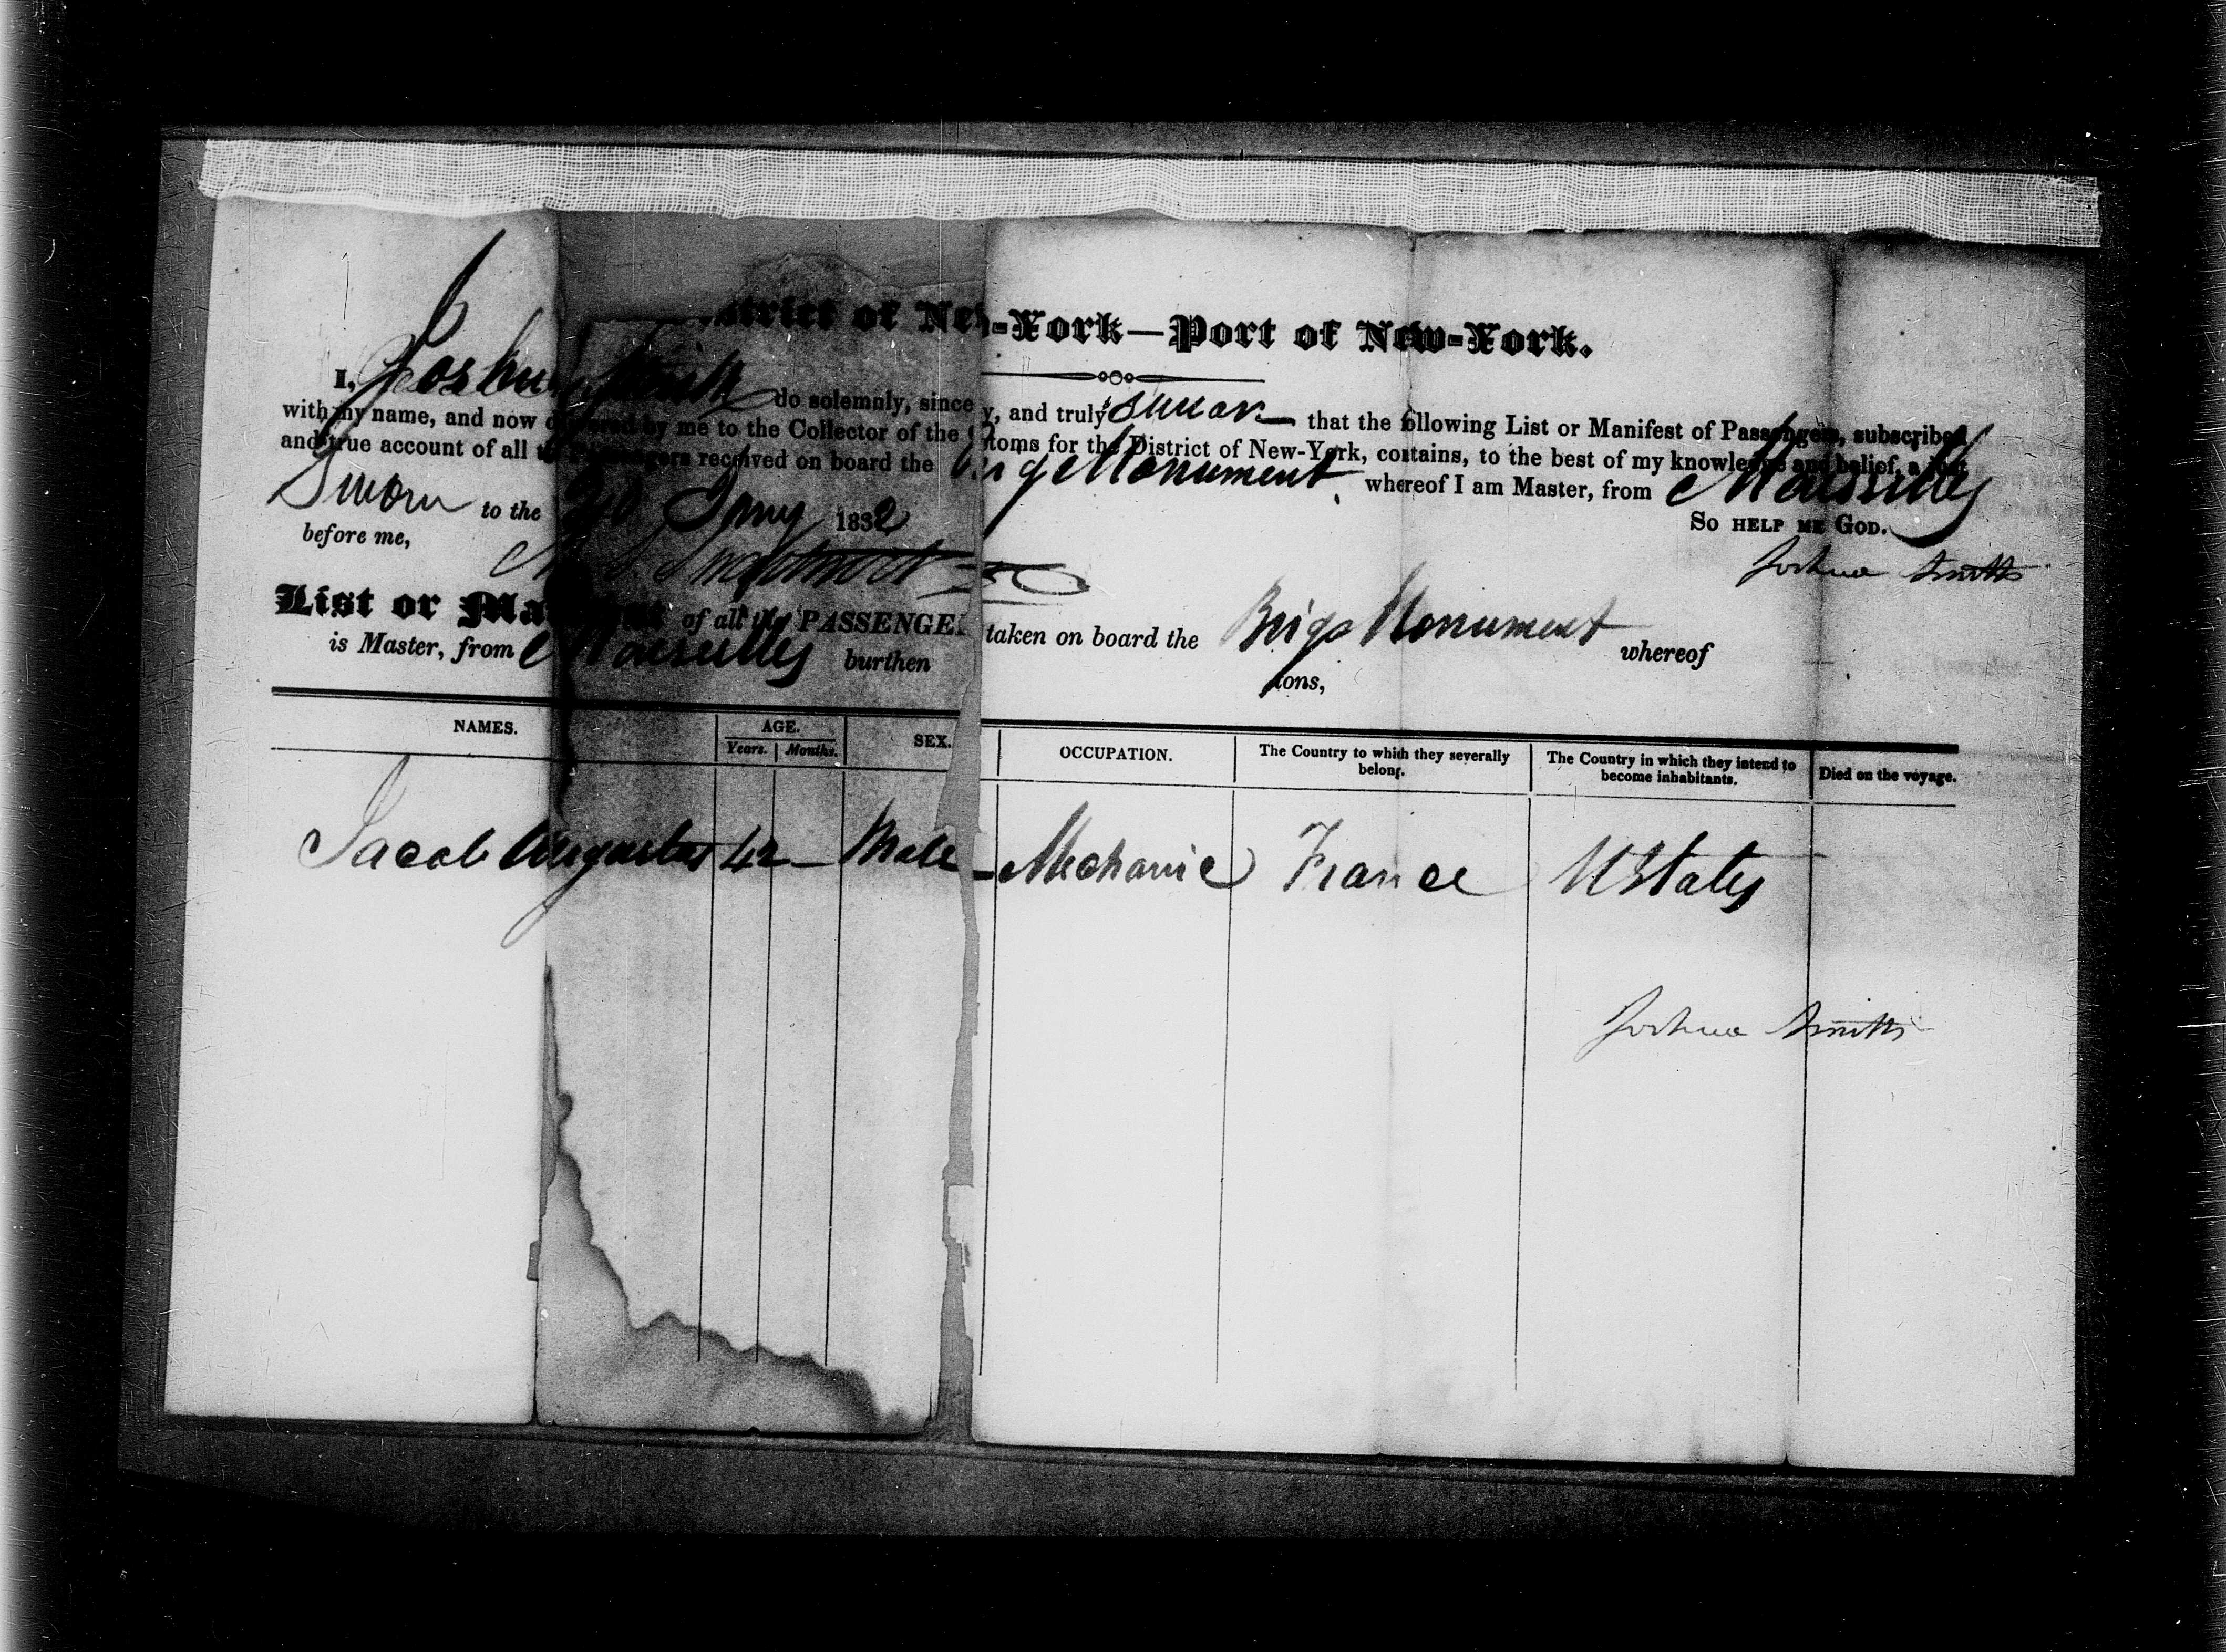 strict of New-York—Port of New-York.
I, Joshua Smith do solemnly, since y, and truly swear that the following List or Manifest of Passengers, subscribed
with my name, and now delivered by me to the Collector of the toms for the District of New-York, contains, to the best of my knowledge and belief, a just
and true account of all the Passengers received on board the Brig Monument whereof I am Master, from Marseilles
Sworn to the Jany 1832 So HELP ME GOD.
before me, Joshua Smith
List or Manifest of all the PASSENGE taken on board the Brig Monument whereof
is Master, from Marseilles burthen tons,
NAMES. AGE. SEX. OCCUPATION. The Country to which they severally belong. The Country in which they intend to become inhabitants. Died on the voyage.
Years. Months.
Jacob Augustus 42 — Male — Mechanic France UStates
Joshua Smith